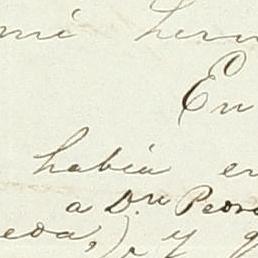 mi her
En
había en
a Dn Pedro
eda,) y q